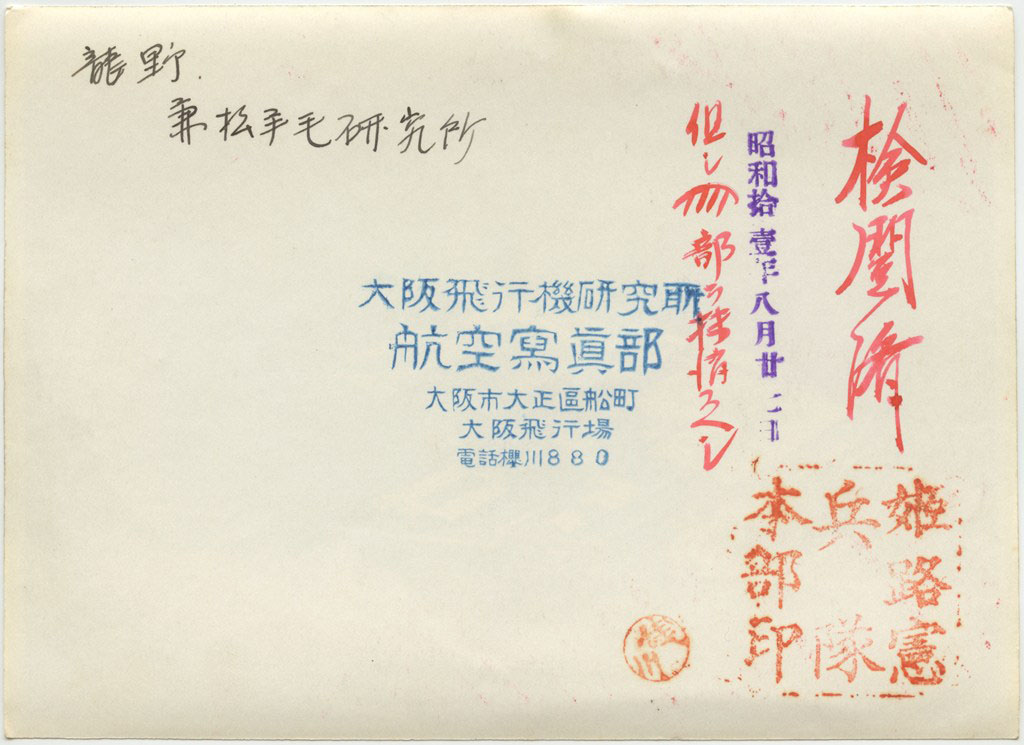 龍野.
兼松羊毛研究所
大阪飛行機研究所
航空寫眞部
大阪市大正區船町
大阪飛行場
電話櫻川880
検閲済
昭和拾壹年八月廿二日
但シ 部ヲ抹消スベシ
姫路憲
兵隊
本部印